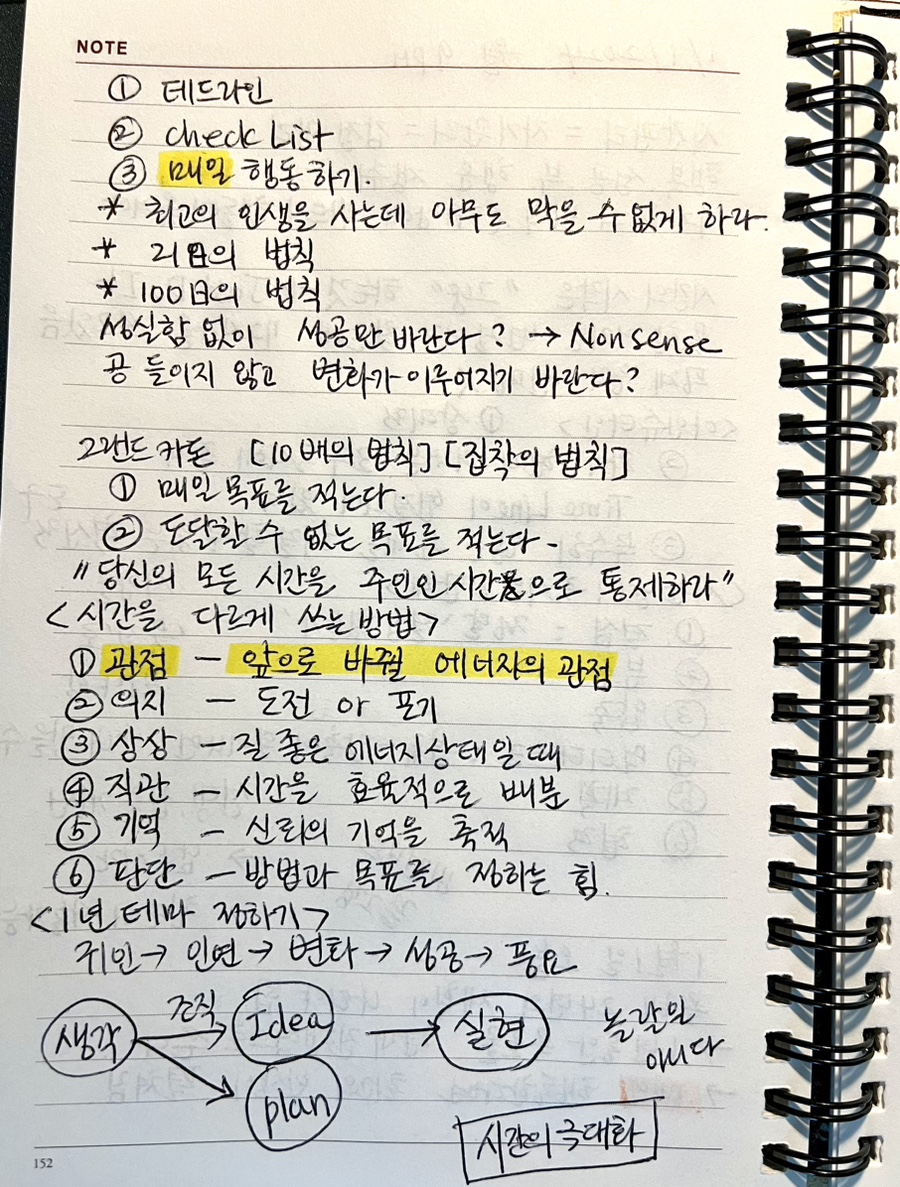 NOTE
① 테드라인
② check List
③ 매일 행동하기.
* 최고의 인생을 사는데 아무도 막을 수 없게 하라.
* 21日의 법칙
* 100日의 법칙
성실함 없이 성공만 바란다? → Nonsense
공 들이지 않고 변화가 이루어지기 바란다?
그랜드 카돈 [10배의 법칙] [집착의 법칙]
① 매일 목표를 적는다.
② 도달할 수 없는 목표를 적는다.
"당신의 모든 시간을 주인인 시간으로 통제하라"
<시간을 다르게 쓰는 방법>
① 관점 - 앞으로 바뀔 에너자의 관점
② 의지 - 도전 or 포기
③ 상상 - 질 좋은 에너지 상태일 때
④ 직관 - 시간을 효율적으로 배분
⑤ 기억 - 신뢰의 기억을 축적
⑥ 판단 - 방법과 목표를 정하는 힘.
<1년 테마 정하기>
귀인 → 인연 → 변화 → 성공 → 풍요
생각 조직 Idea → 실현 놀랄일
아니다
plan
시간의 극대화
152